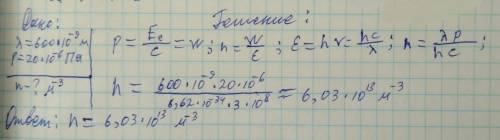 Дано:
λ=600·10⁻⁹ м
P=20·10⁻⁶ Па
n-? м⁻³
Решение:
P = Eе/c = w; n = w/ε; ε = hν = hc/λ; n = λP/hc;
n = 600·10⁻⁹·20·10⁻⁶ / 6,62·10⁻³⁴·3·10⁸ = 6,03·10¹³ м⁻³
Ответ: n = 6,03·10¹³ м⁻³